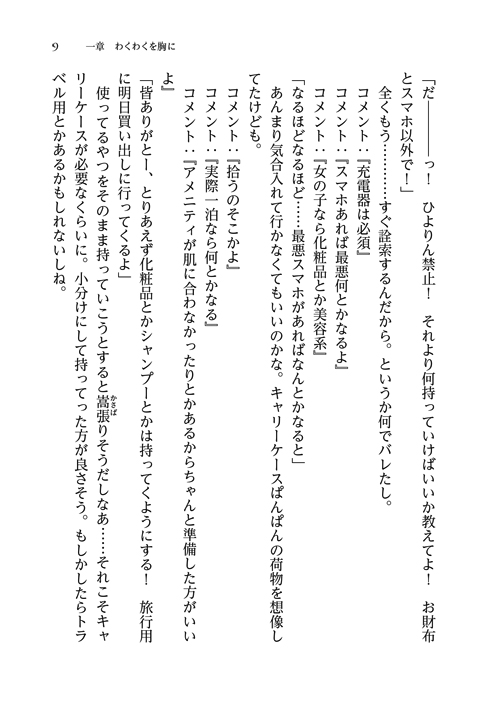 9　一章　わくわくを胸に
「だ―――っ！　ひよりん禁止！　それより何持っていけばいいか教えてよ！　お財布
とスマホ以外で！」
　全くもう…………すぐ詮索するんだから。というか何でバレたし。
　コメント：『充電器は必須』
　コメント：『スマホあれば最悪何とかなるよ』
　コメント：『女の子なら化粧品とか美容系』
「なるほどなるほど……最悪スマホがあればなんとかなると」
　あんまり気合入れて行かなくてもいいのかな。キャリーケースぱんぱんの荷物を想像し
てたけども。
　コメント：『拾うのそこかよ』
　コメント：『実際一泊なら何とかなる』
　コメント：『アメニティが肌に合わなかったりとかあるからちゃんと準備した方がいい
よ』
「皆ありがとー、とりあえず化粧品とかシャンプーとかは持ってくようにする！　旅行用
に明日買い出しに行ってくるよ」
　使ってるやつをそのまま持っていこうとすると嵩張りそうだしなあ……それこそキャ
かさば
リーケースが必要なくらいに。小分けにして持ってった方が良さそう。もしかしたらトラ
ベル用とかあるかもしれないしね。